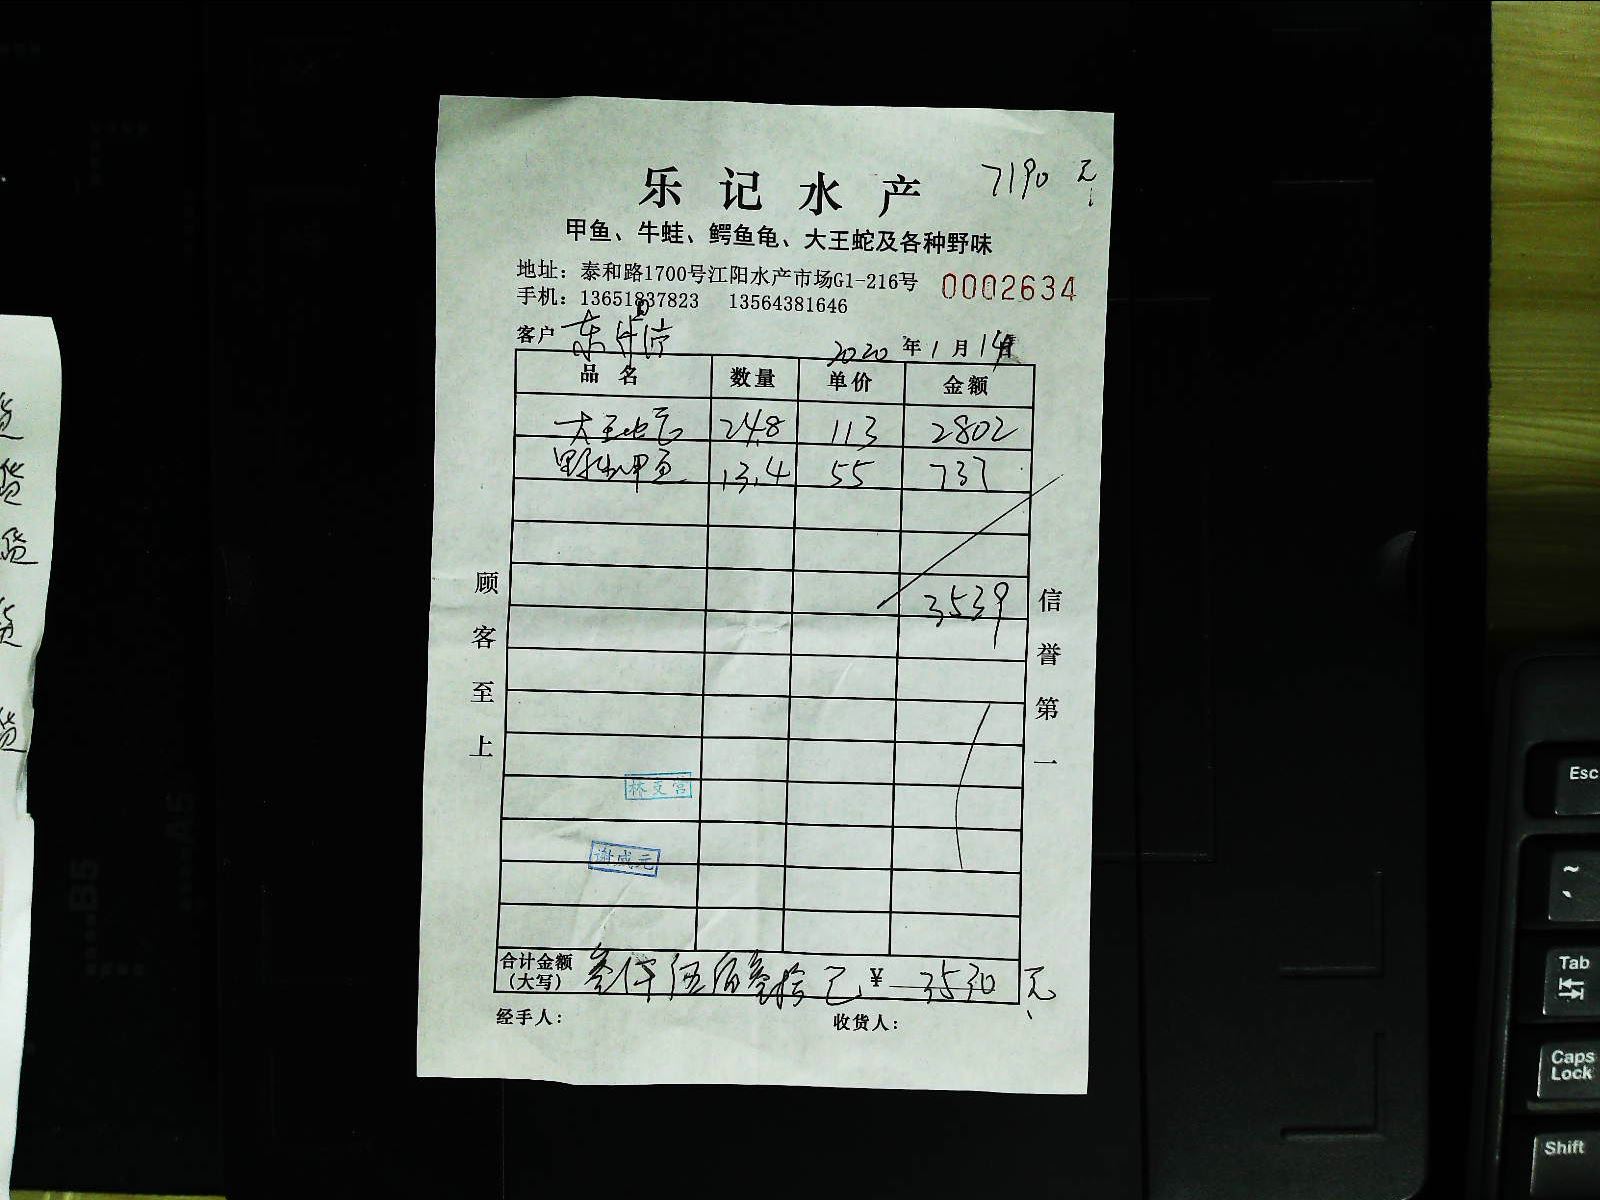 7190 元
乐记水产
甲鱼、牛蛙、鳄鱼龟、大王蛇及各种野味
地址：泰和路1700号江阳水产市场G1-216号
0002634
手机：13651837823 13564381646
客户
2020 年 1 月 14 日
品名 数量 单价 金额
大王蛇 24.8 113 2802
野生甲鱼 13.4 55 737
3539
顾客至上
信誉第一
林支营
谢成元
合计金额（大写） 叁仟伍佰叁拾 ¥ 3530 元
经手人： 收货人：
Esc
~
Tab
Caps Lock
Shift
B5
A5
货
货
货
货